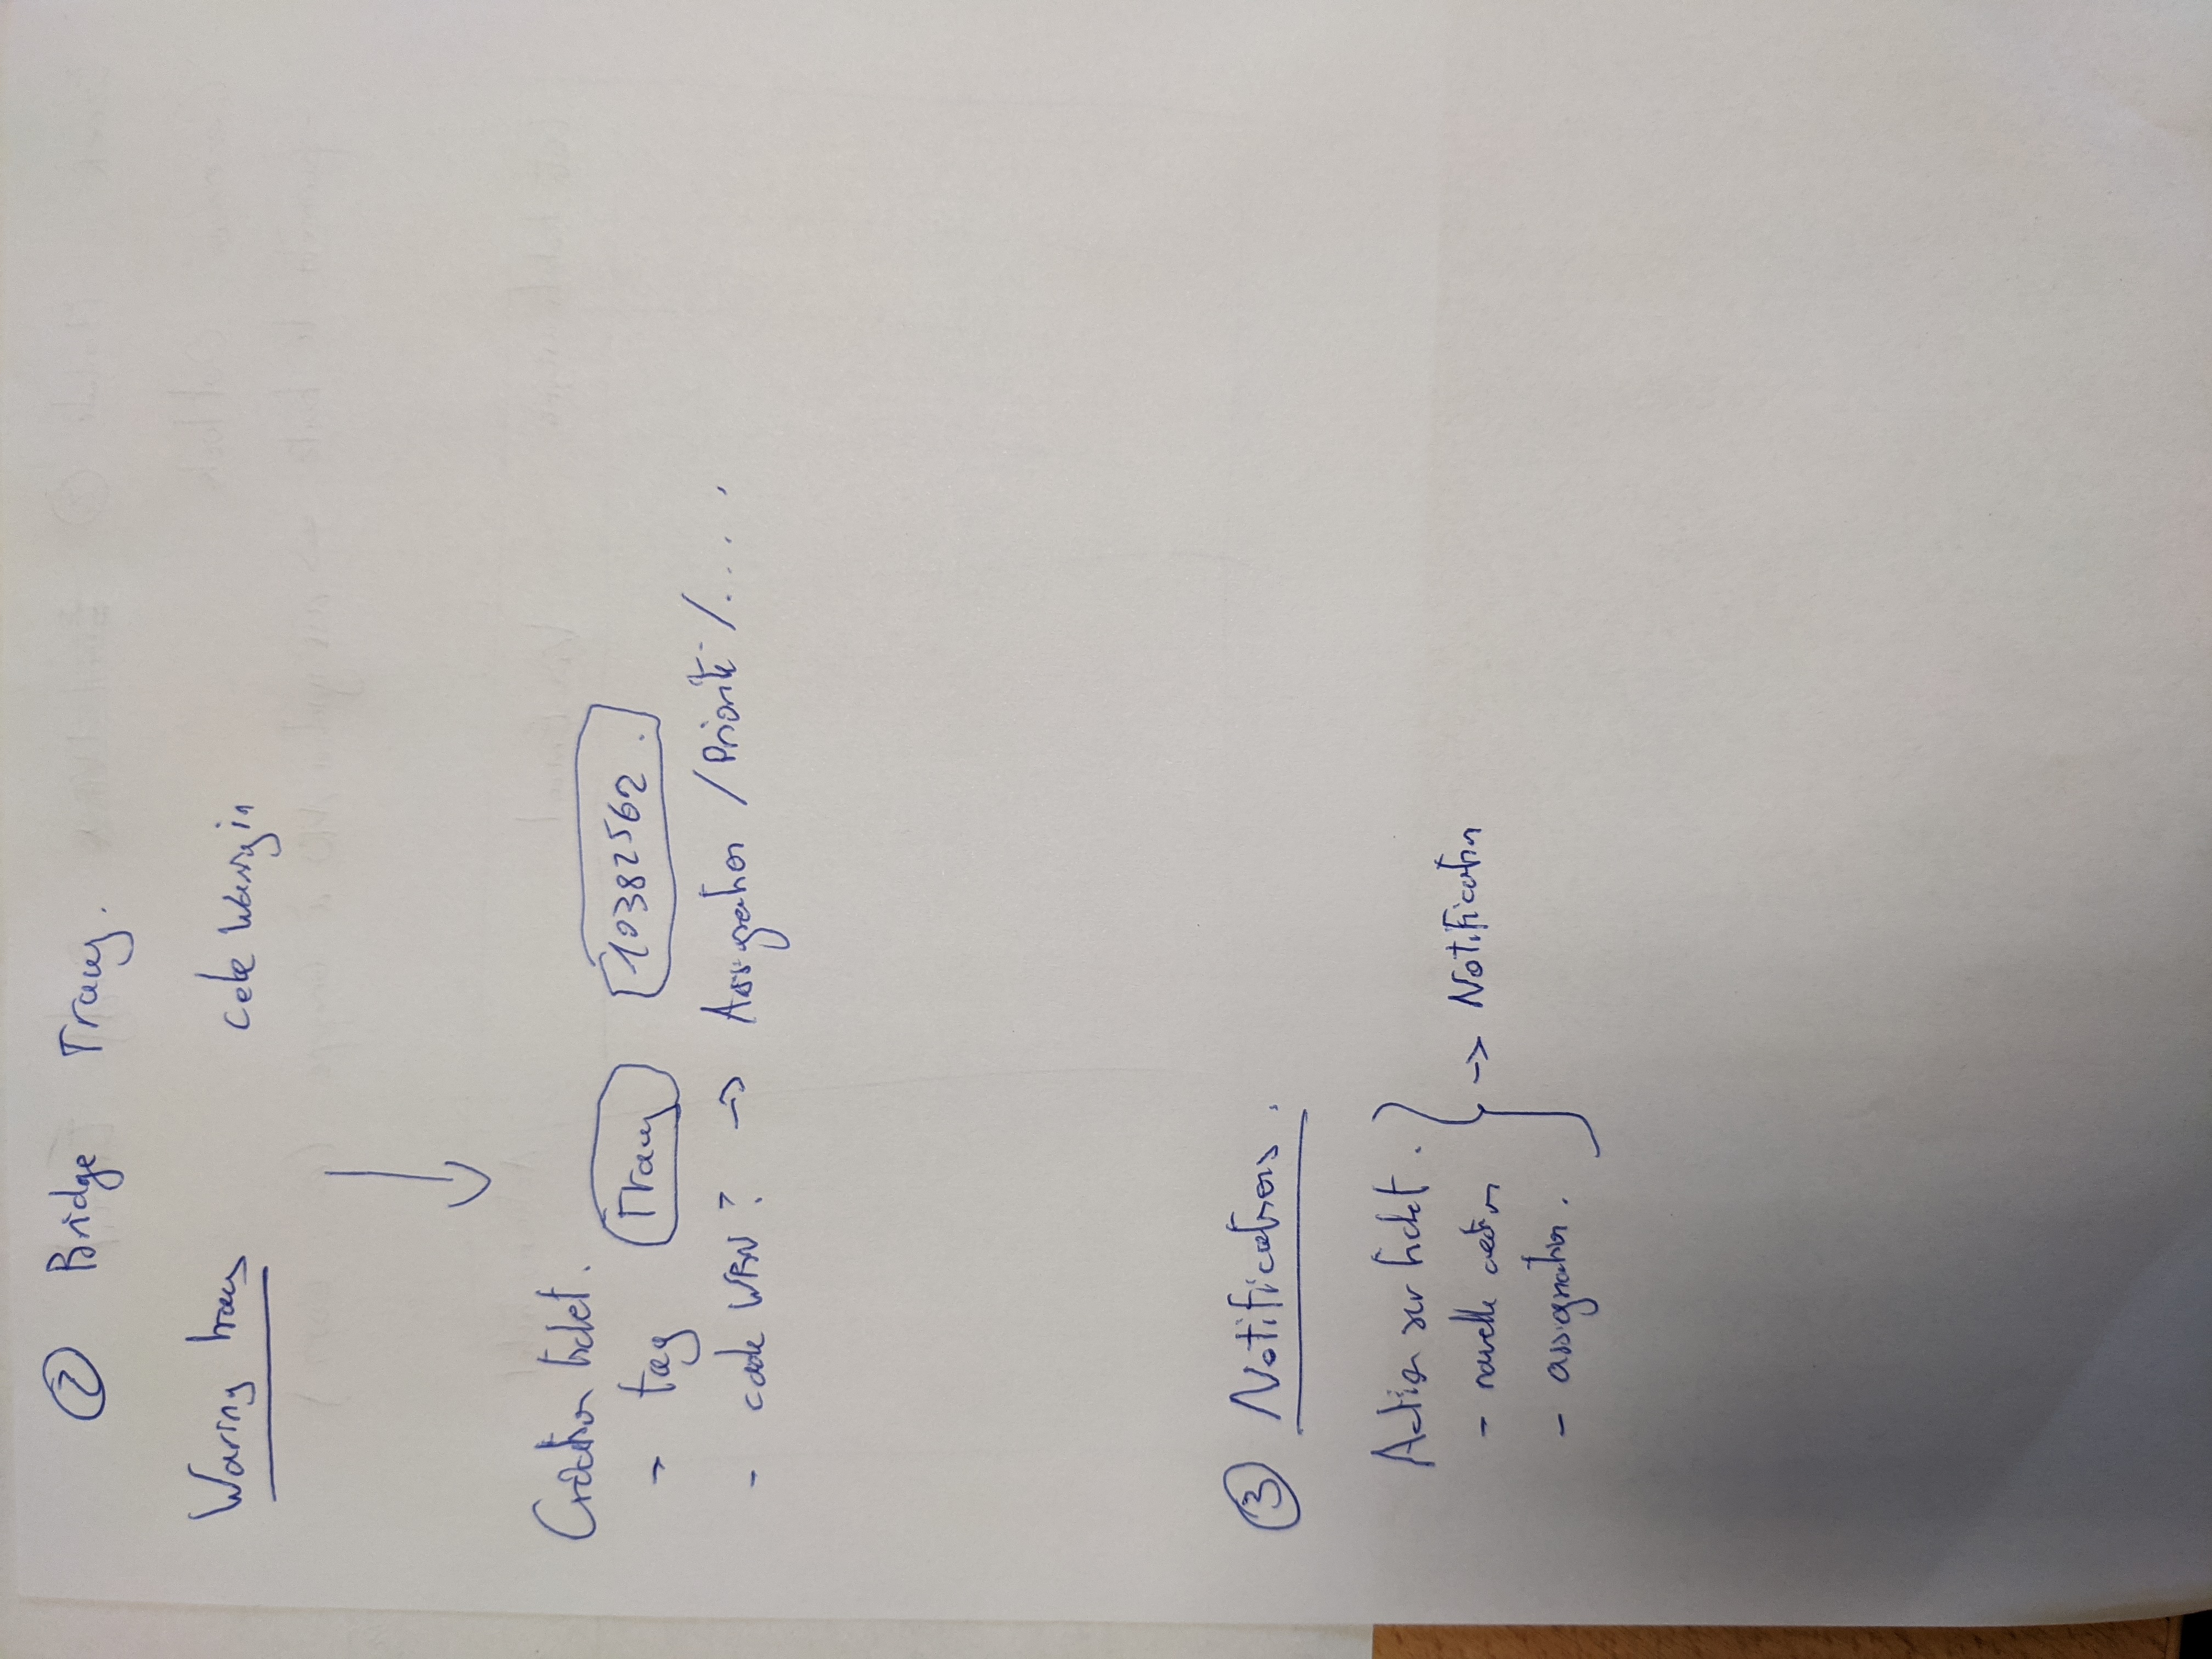 ② Bridge Trauy.
Waring trauy code Warngin
Création ticket.
- tag Trauy 10382562.
- code WRN? -> Assignation / Priorité / . . . .
③ Notifications.
Action sur ticket.
- nouvelle action -> Notification
- assignation.